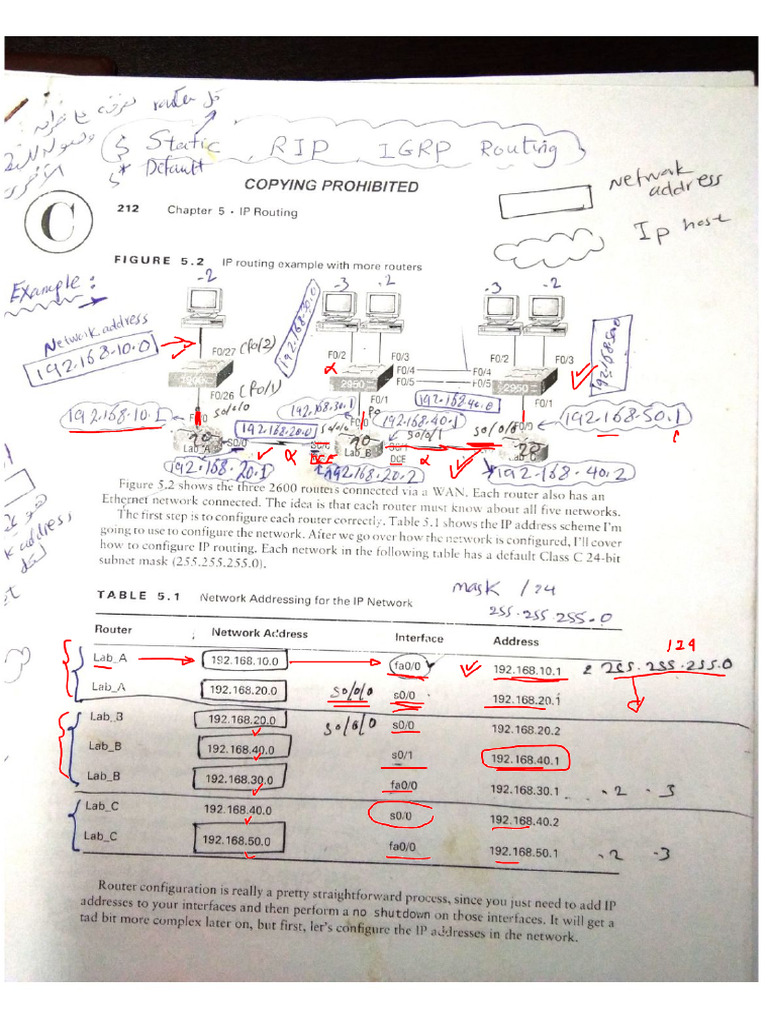 كل router معرفة
Static , RIP , IGRP Routing
* Default
COPYING PROHIBITED
C
212 Chapter 5 · IP Routing
Network address
Ip host
FIGURE 5.2 IP routing example with more routers
Example:
-2 -3 -2 -3 -2
192.168.30.0
192.168.50.0
Network address
192.168.10.0
F0/27 (f0/2) F0/2 F0/3 F0/2 F0/3
F0/4 F0/4
F0/5 F0/5
2950 2950
F0/26 (f0/1) F0/1 F0/1
192.168.10.1 s0/0/0 192.168.30.1 192.168.40.0
192.168.20.0 s0/0/0 F0/0 192.168.40.1 s0/0/0 192.168.50.1
Lab_A S0/0 Lab_B s0/0/1
DCE DCE
192.168.20.1 192.168.20.2 192.168.40.2
Figure 5.2 shows the three 2600 routers connected via a WAN. Each router also has an
Ethernet network connected. The idea is that each router must know about all five networks.
The first step is to configure each router correctly. Table 5.1 shows the IP address scheme I'm
going to use to configure the network. After we go over how the network is configured, I'll cover
how to configure IP routing. Each network in the following table has a default Class C 24-bit
subnet mask (255.255.255.0).
mask /24
255.255.255.0
TABLE 5.1 Network Addressing for the IP Network
Router Network Address Interface Address
124
Lab_A 192.168.10.0 fa0/0 192.168.10.1 255.255.255.0
Lab_A 192.168.20.0 s0/0/0 s0/0 192.168.20.1
Lab_B 192.168.20.0 s0/0/0 s0/0 192.168.20.2
Lab_B 192.168.40.0 s0/1 192.168.40.1
Lab_B 192.168.30.0 fa0/0 192.168.30.1 .2 .3
Lab_C 192.168.40.0 s0/0 192.168.40.2
Lab_C 192.168.50.0 fa0/0 192.168.50.1 .2 -3
Router configuration is really a pretty straightforward process, since you just need to add IP
addresses to your interfaces and then perform a no shutdown on those interfaces. It will get a
tad bit more complex later on, but first, let's configure the IP addresses in the network.